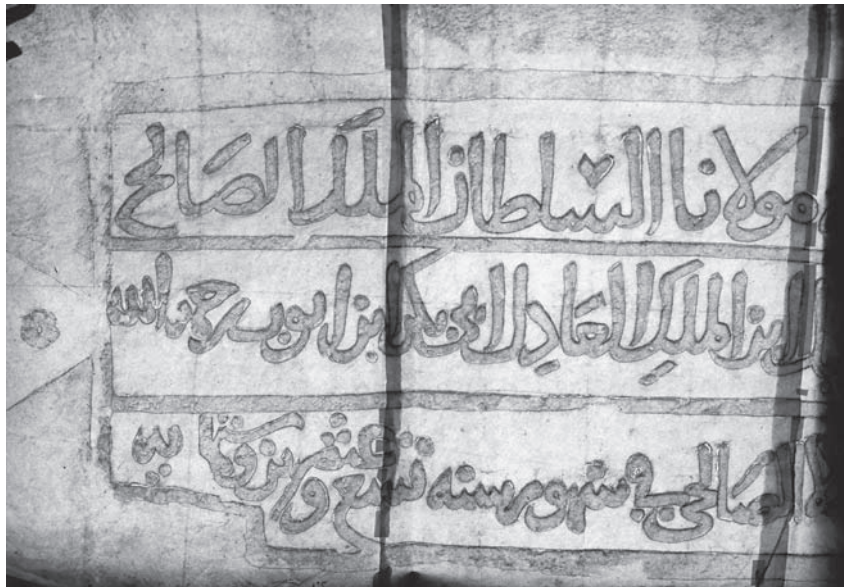 مولانا السلطان الملك الصالح
ابن الملك العادل ابي بكر ابن ايوب رحمه الله
الصالحي في شهور سنه تسع وعشرين وستمايه